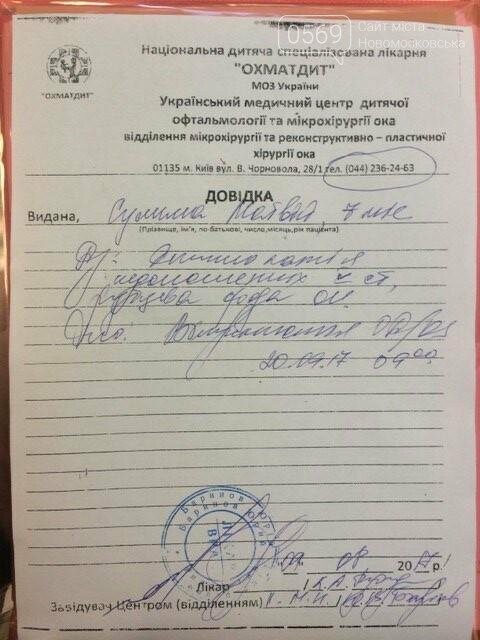 0569
Сайт міста
Новомосковська
Національна дитяча спеціалізована лікарня
"ОХМАТДИТ"
МОЗ України
"ОХМАТДИТ"
Український медичний центр дитячої
офтальмології та мікрохірургії ока
відділення мікрохірургії та реконструктивно – пластичної
хірургії ока
01135 м. Київ вул. В. Чорновола, 28/1 тел. (044) 236-24-63
ДОВІДКА
Видана, Сулима Матвій, 7 міс
(Прізвище, ім'я, по-батькові, число,місяць,рік пацієнта)
Ретинопатія
недоношених V ст,
рубцева фаза OU
20.09.17 09 00
08 2017 р.
Лікар
Завідувач Центром (відділенням)